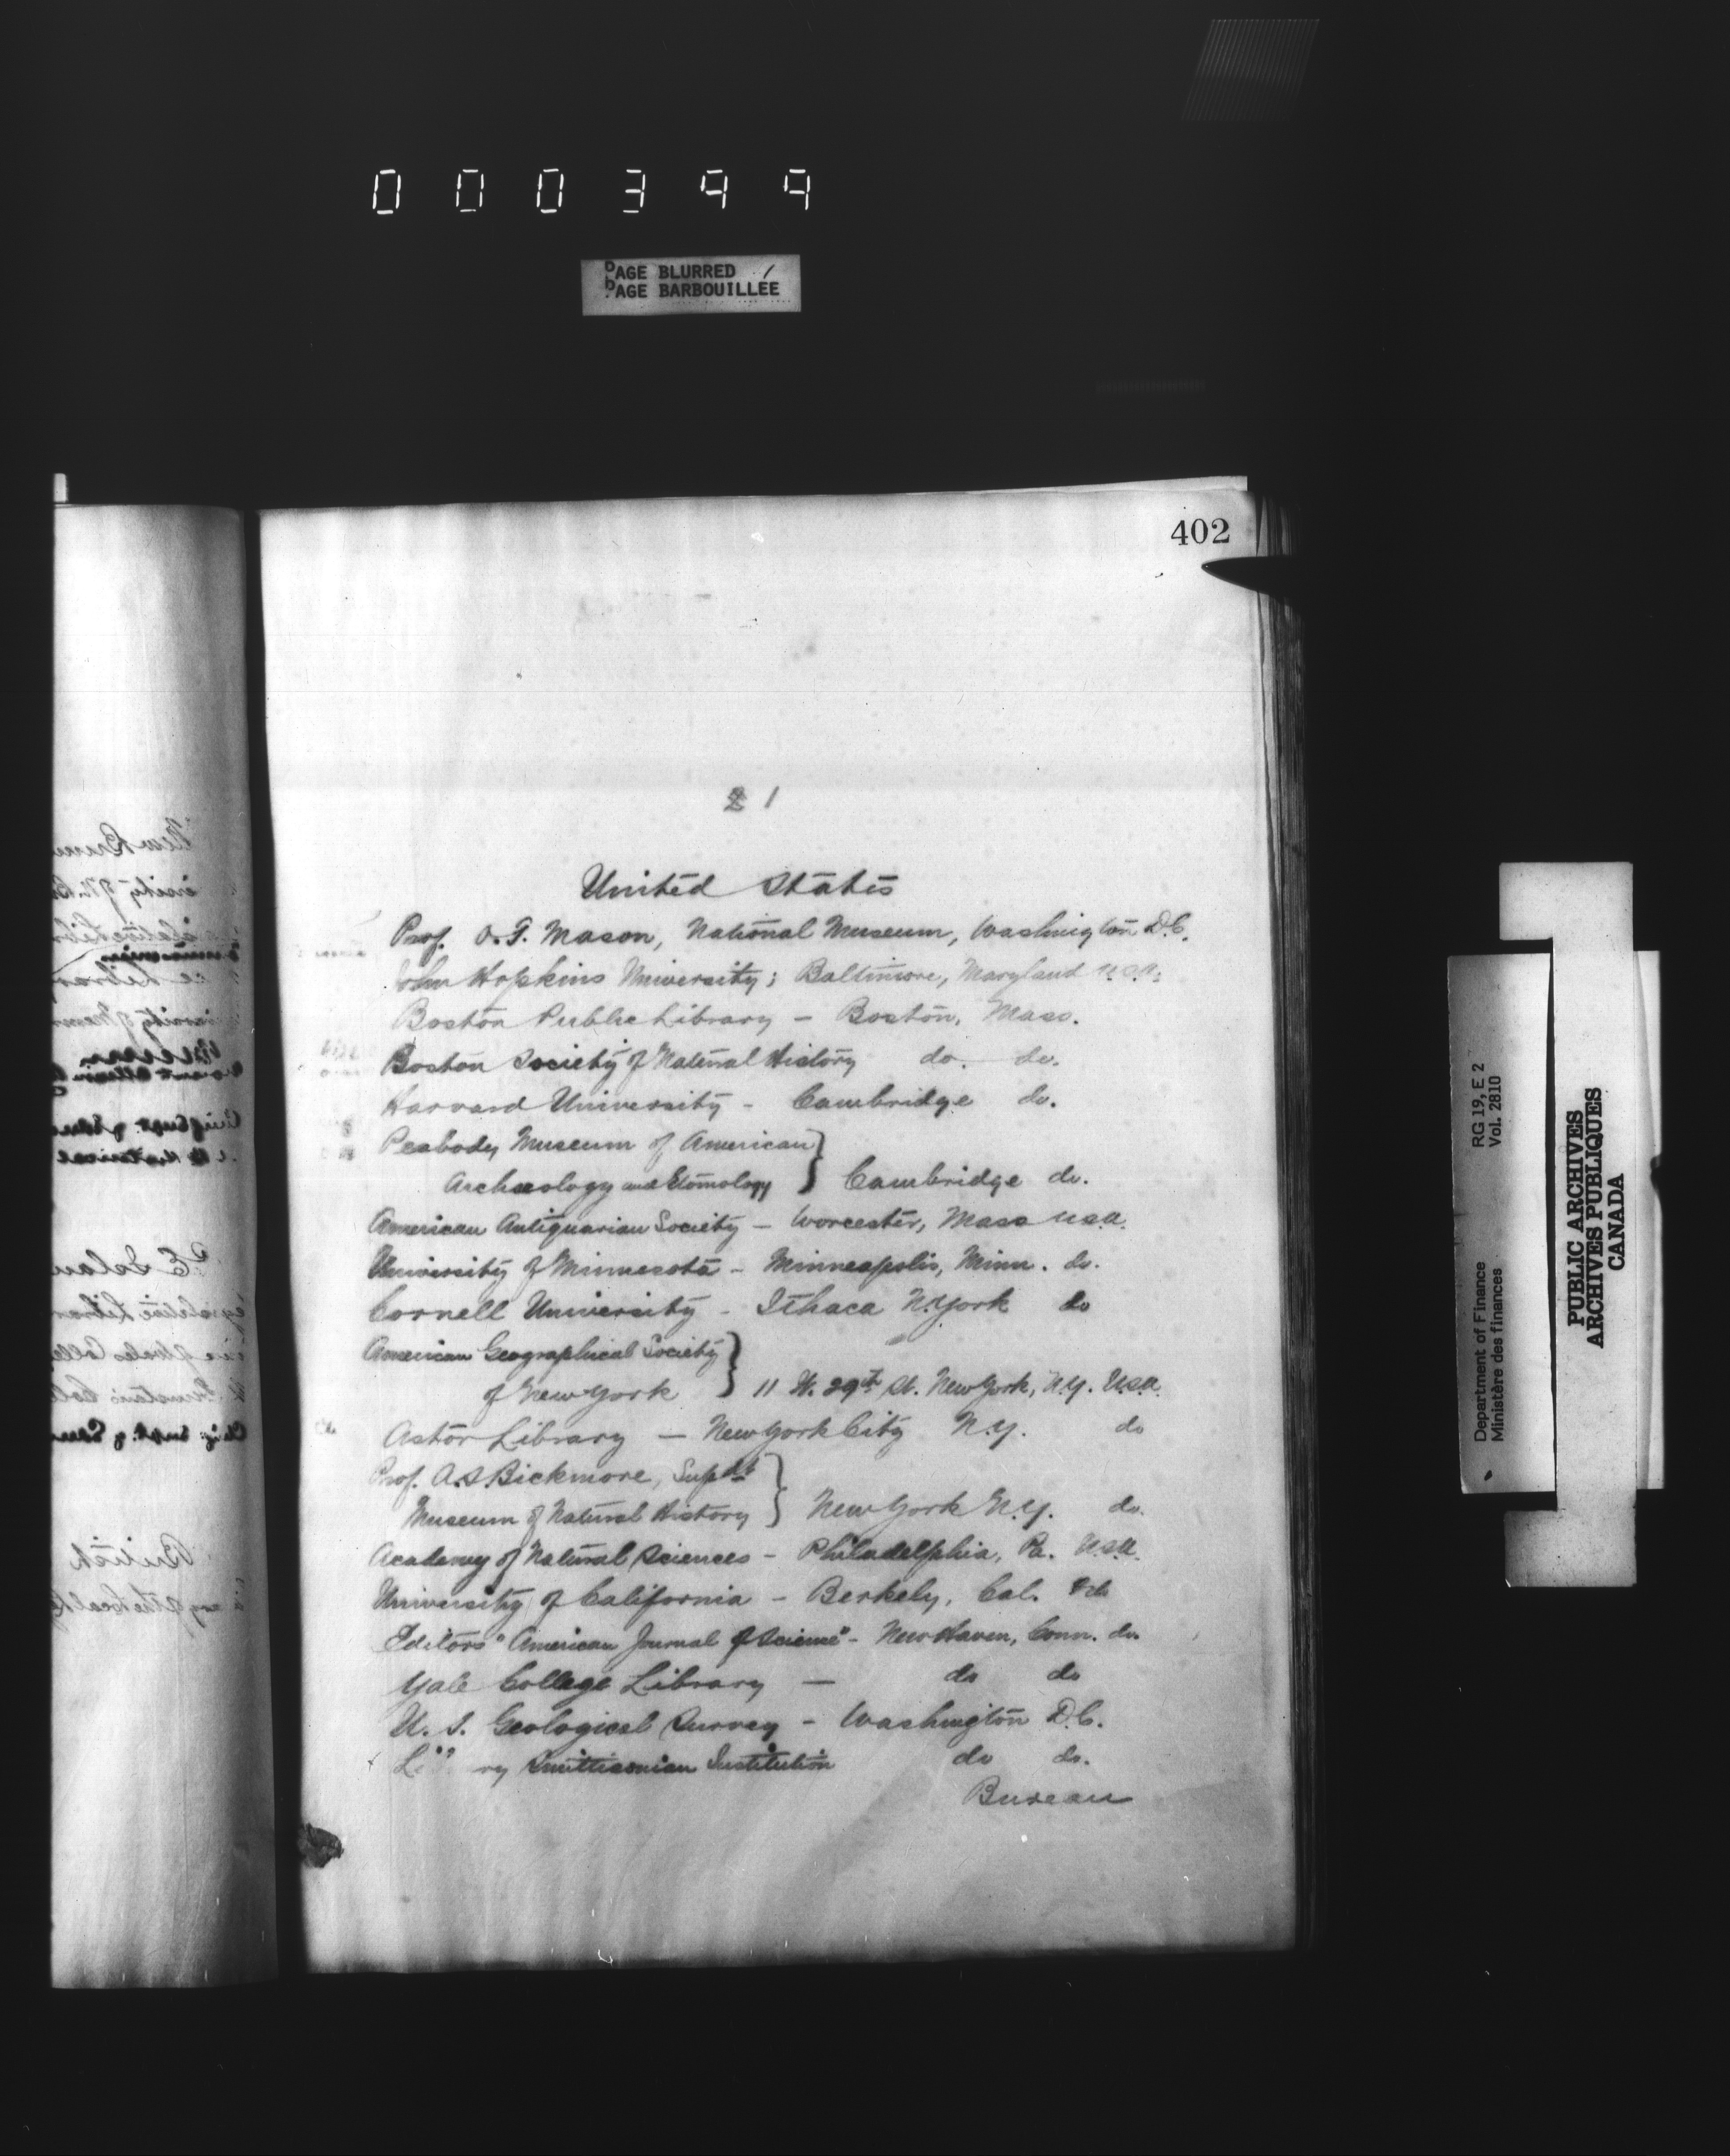 000399
PAGE BLURRED
PAGE BARBOUILLÉE
402
2 1
United States
Prof. O. T. Mason, National Museum, Washington D.C.
John Hopkins University; Baltimore, Maryland U.S.A.
Boston Public Library - Boston, Mass.
Boston Society of Natural History do. do.
Harvard University - Cambridge do.
Peabody Museum of American
Archæology and Etomology } Cambridge do.
American Antiquarian Society - Worcester, Mass U.S.A.
University of Minnesota - Minneapolis, Minn. do.
Cornell University - Ithaca N.York do
American Geographical Society
of New York } 11 W. 29th St. New York, N.Y. U.S.A.
Astor Library - New York City N.Y. do
Prof. A.S. Bickmore, Supdt
Museum of Natural History } New York N.Y. do.
Academy of Natural Sciences - Philadelphia, Pa. U.S.A.
University of California - Berkely, Cal. do
Editors "American Journal of Science" - New Haven, Conn. do.
Yale College Library - do do
U. S. Geological Survey - Washington D.C.
Smithsonian Institution do do.
Bureau
Department of Finance RG 19, E 2
Ministère des finances Vol. 2810
PUBLIC ARCHIVES
ARCHIVES PUBLIQUES
CANADA